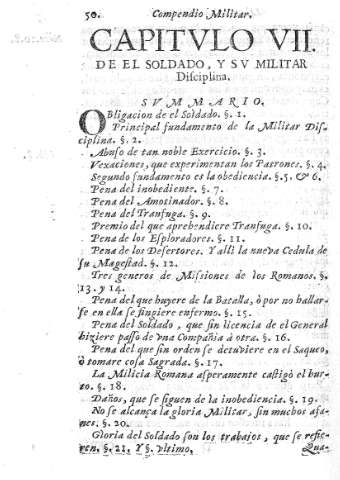 50. Compendio Militar.
CAPITVLO VII.
DE EL SOLDADO, Y SV MILITAR
Disciplina.
SVMMARIO.
OBligacion de el Soldado. §. 1.
Principal fundamento de la Militar Dis-
ciplina. §. 2.
Abuso de tan noble Exercicio. §. 3.
Vexaciones, que experimentan los Patrones. §. 4.
Segundo fundamento es la obediencia. §. 5. & 6.
Pena del inobediente. §. 7.
Pena del Amotinador. §. 8.
Pena del Transfuga. §. 9.
Premio del que aprehendiere Transfuga. §. 10.
Pena de los Esploradores. §. 11.
Pena de los Desertores. Y alli la nueva Cedula de
su Magestad. §. 12.
Tres generos de Missiones de los Romanos. §.
13. y 14.
Pena del que huyere de la Batalla, ò por no hallar-
se en ella se fingiere enfermo. §. 15.
Pena del Soldado, que sin licencia de el General
hiziere passo de vna Compañia à otra. §. 16.
Pena del que sin orden se detuviere en el Saqueo,
ò tomare cosa Sagrada. §. 17.
La Milicia Romana asperamente castigò el hur-
to. §. 18.
Daños, que se siguen de la inobediencia. §. 19.
No se alcança la gloria Militar, sin muchos afa-
nes. §. 20.
Gloria del Soldado son los trabajos, que se refie-
ren, §. 21. Y §. vltimo.
Qua-